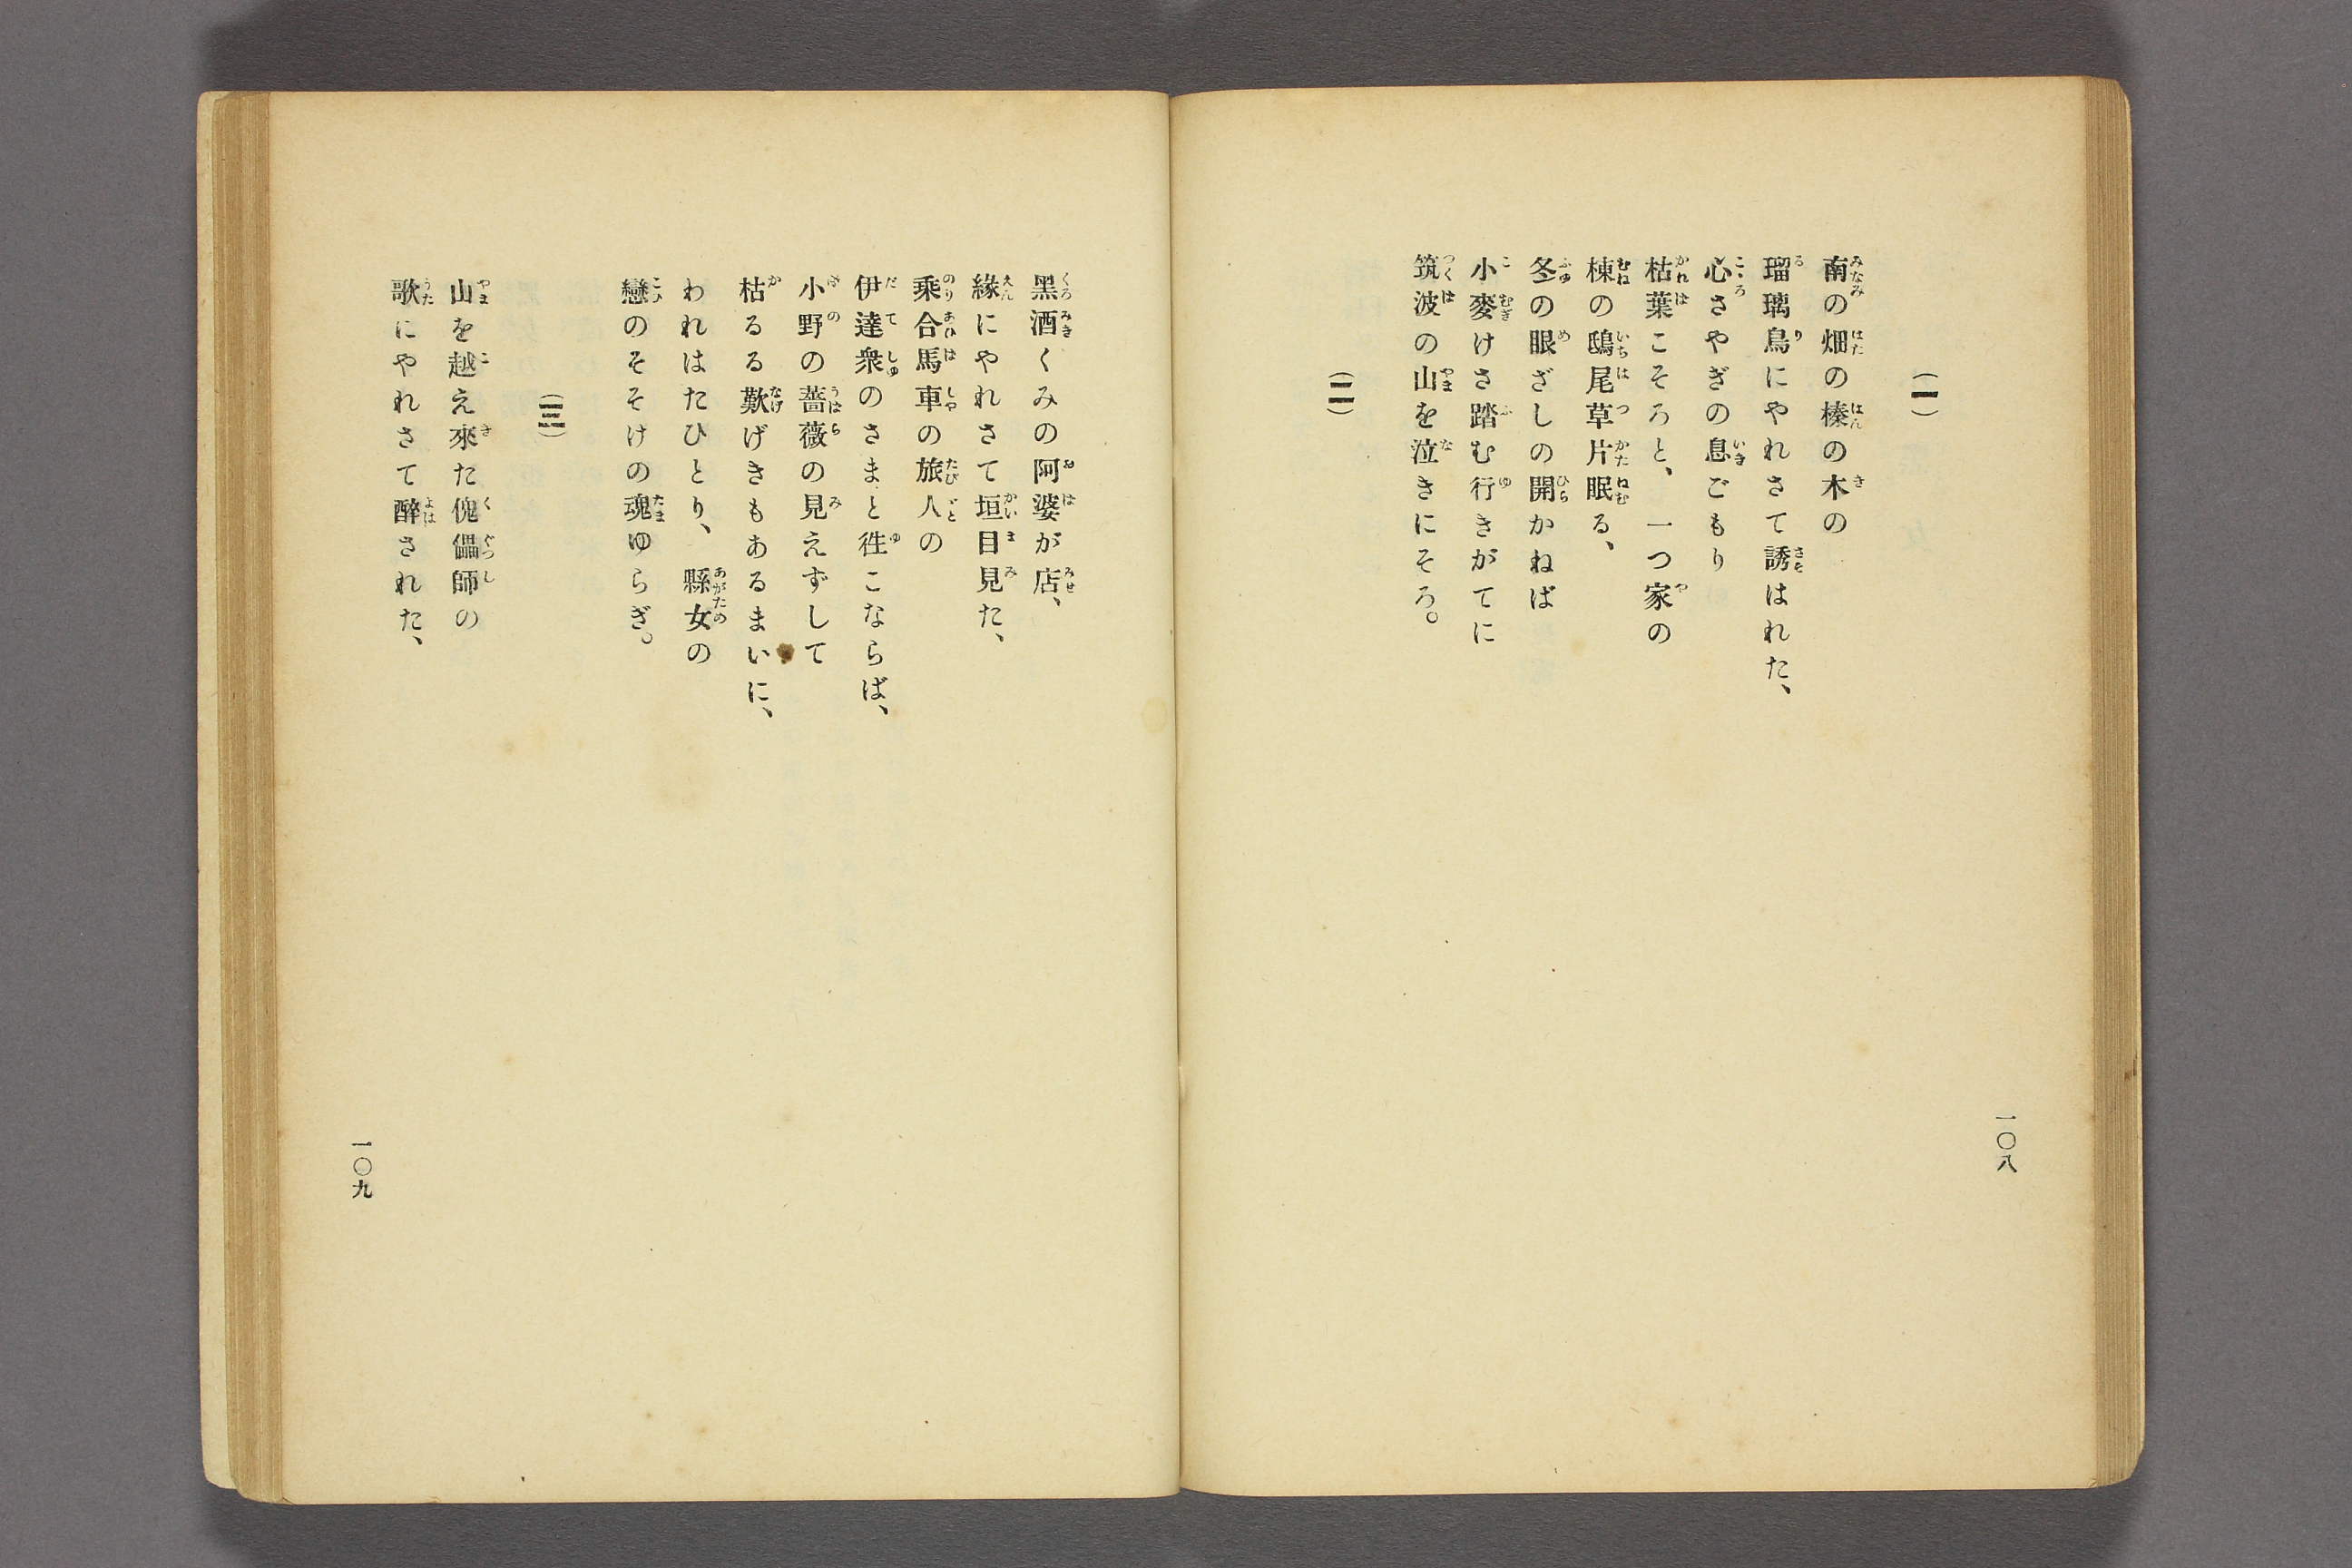 (一)
南の畑の榛の木の
瑠璃鳥にやれさて誘はれた、
心さやぎの息ごもり
枯葉こそろと、一つ家の
棟の鴟尾草片眠る、
冬の眼ざしの開かねば
小麥けさ踏む行きがてに
筑波の山を泣きにそろ。
(二)
一〇八
黑酒くみの阿婆が店、
緣にやれさて垣目見た、
乘合馬車の旅人の
伊達衆のさまと徃こならば、
小野の薔薇の見えずして
枯るる歎げきもあるまいに、
われはたひとり、縣女の
戀のそそけの魂ゆらぎ。
(三)
山を越え來た傀儡師の
歌にやれさて醉された、
一〇九